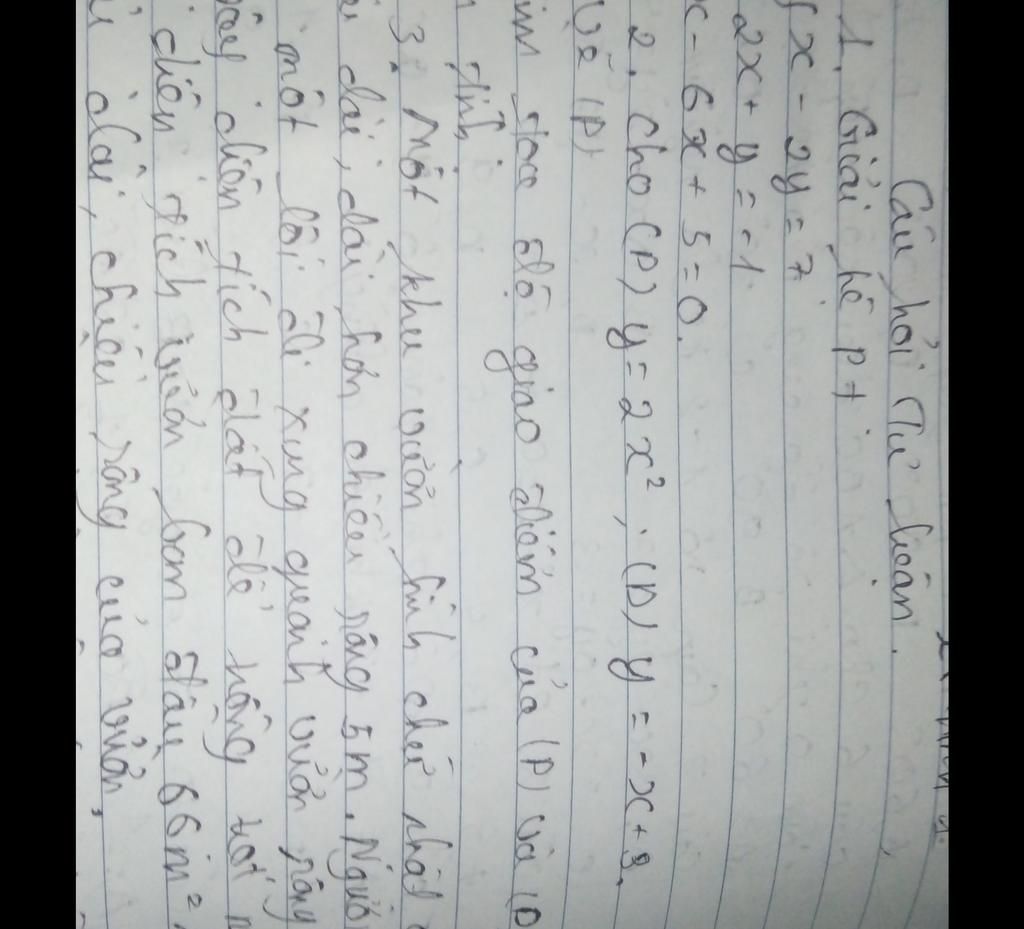 Câu hỏi Tự luận.
1. Giải hệ pt
{x - 2y = 7
2x + y = -1
x - 6x + 5 = 0.
2. Cho (P) y = 2x², (D) y = -x + 3.
Vẽ (P)
tìm toạ độ giao điểm của (P) và (D
tính.
3 Một khu vườn hình chữ nhật
dài, dài hơn chiều rộng 5m. Ngườ
một lối đi xung quanh vườn rộng
diện tích đất để trồng
diện tích vườn ban đầu 66m².
dài, chiều rộng của vườn.